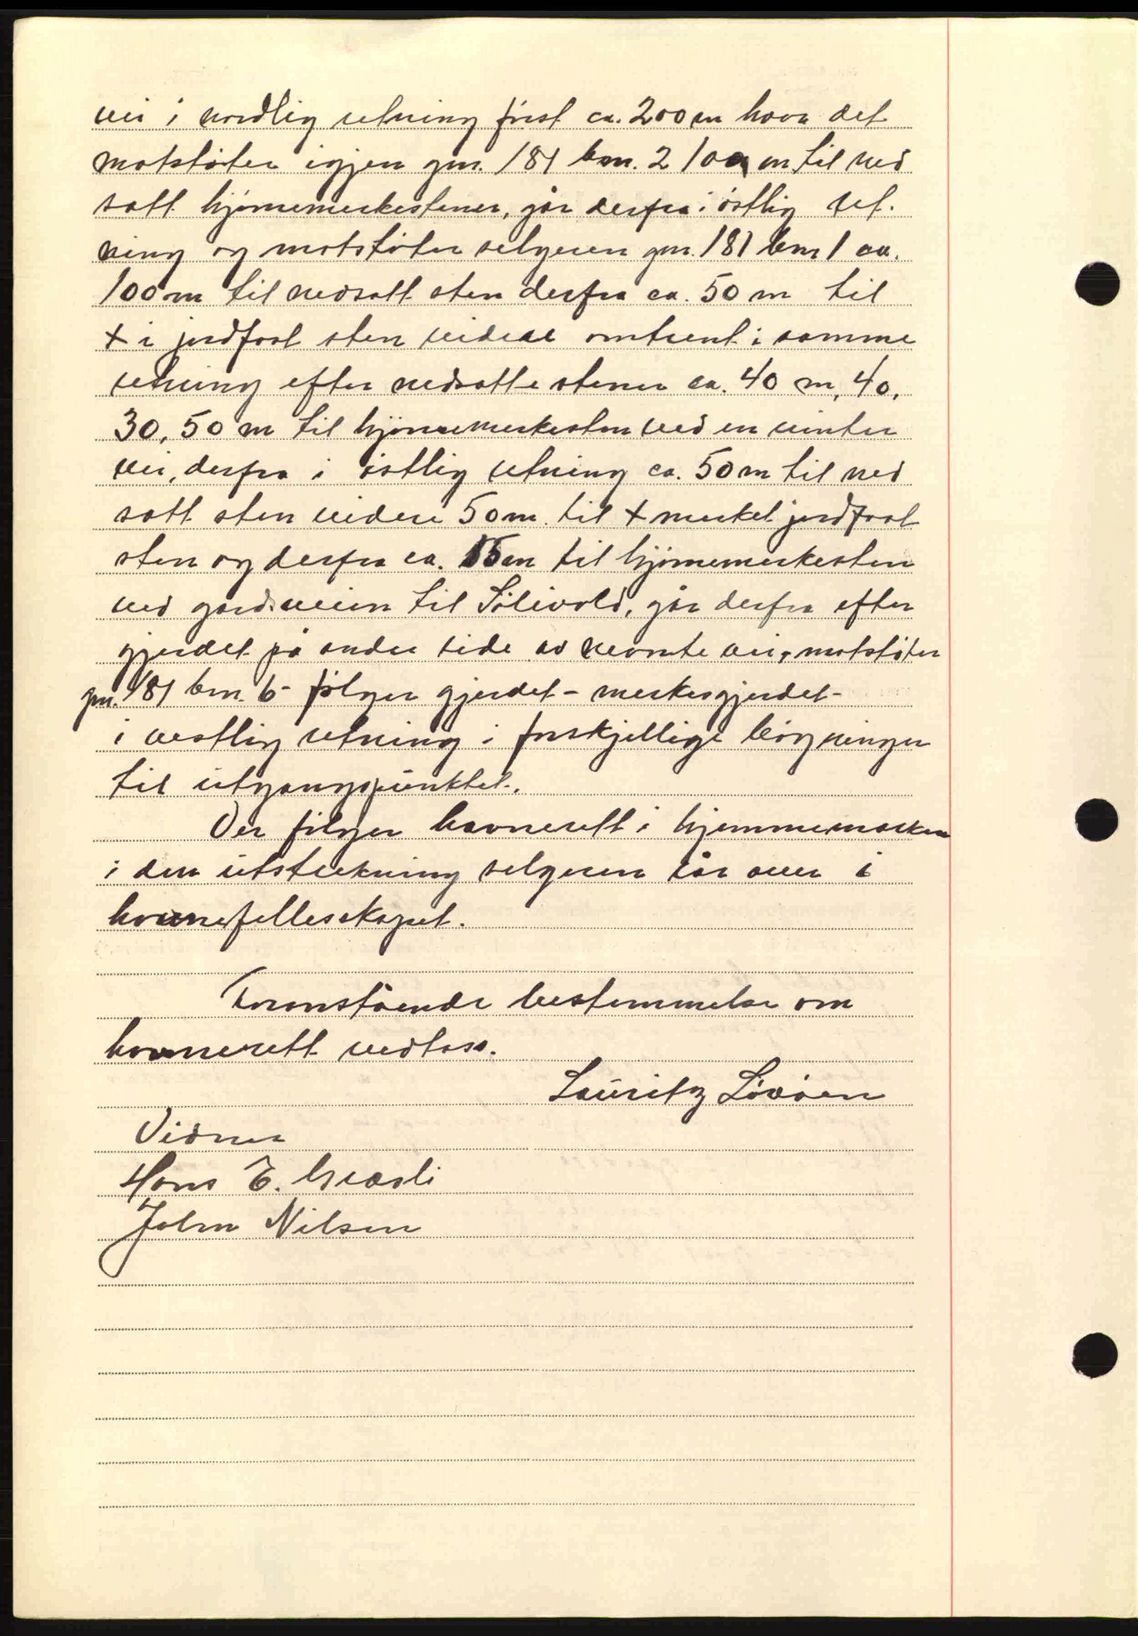 vei i nordlig retning först ca. 200 m hvor det
motstöter igjen gnr. 181 bnr. 2 100 m til ned
satt hjörnemerkestener, går derfra i östlig ret.
ning og motstöter selgeren gnr. 181 bnr 1 ca.
100 m til nedsatt sten derfra ca. 50 m til
+ i jordfast sten videre omtrent i samme
retning efter nedsatte stener ca. 40 m, 40,
30, 50 m til hjörnemerkesten ved en vinter
vei, derfra i östlig retning ca. 50 m til ned
satt sten videre 50 m til + merket jordfast
sten og derfra ca. 15 m til hjörnemerkesten
ved gårdsveien til Sölivold, går derfra efter
gjerdet på andre side av nevnte vei, motstöter
gnr. 181 bnr. 6 - fölger gjerdet - merkesgjerdet -
i vestlig retning i forskjellige böyninger
til utgangspunktet.
Der fölger havnerett i hjemmemarken
i den utstrekning selgeren rår over i
havnefellesskapet.
Foranstående bestemmelse om
havnerett vedtass.
Lauritz Lövöen
Vidner
Hans E. Græsli
John Nilsen